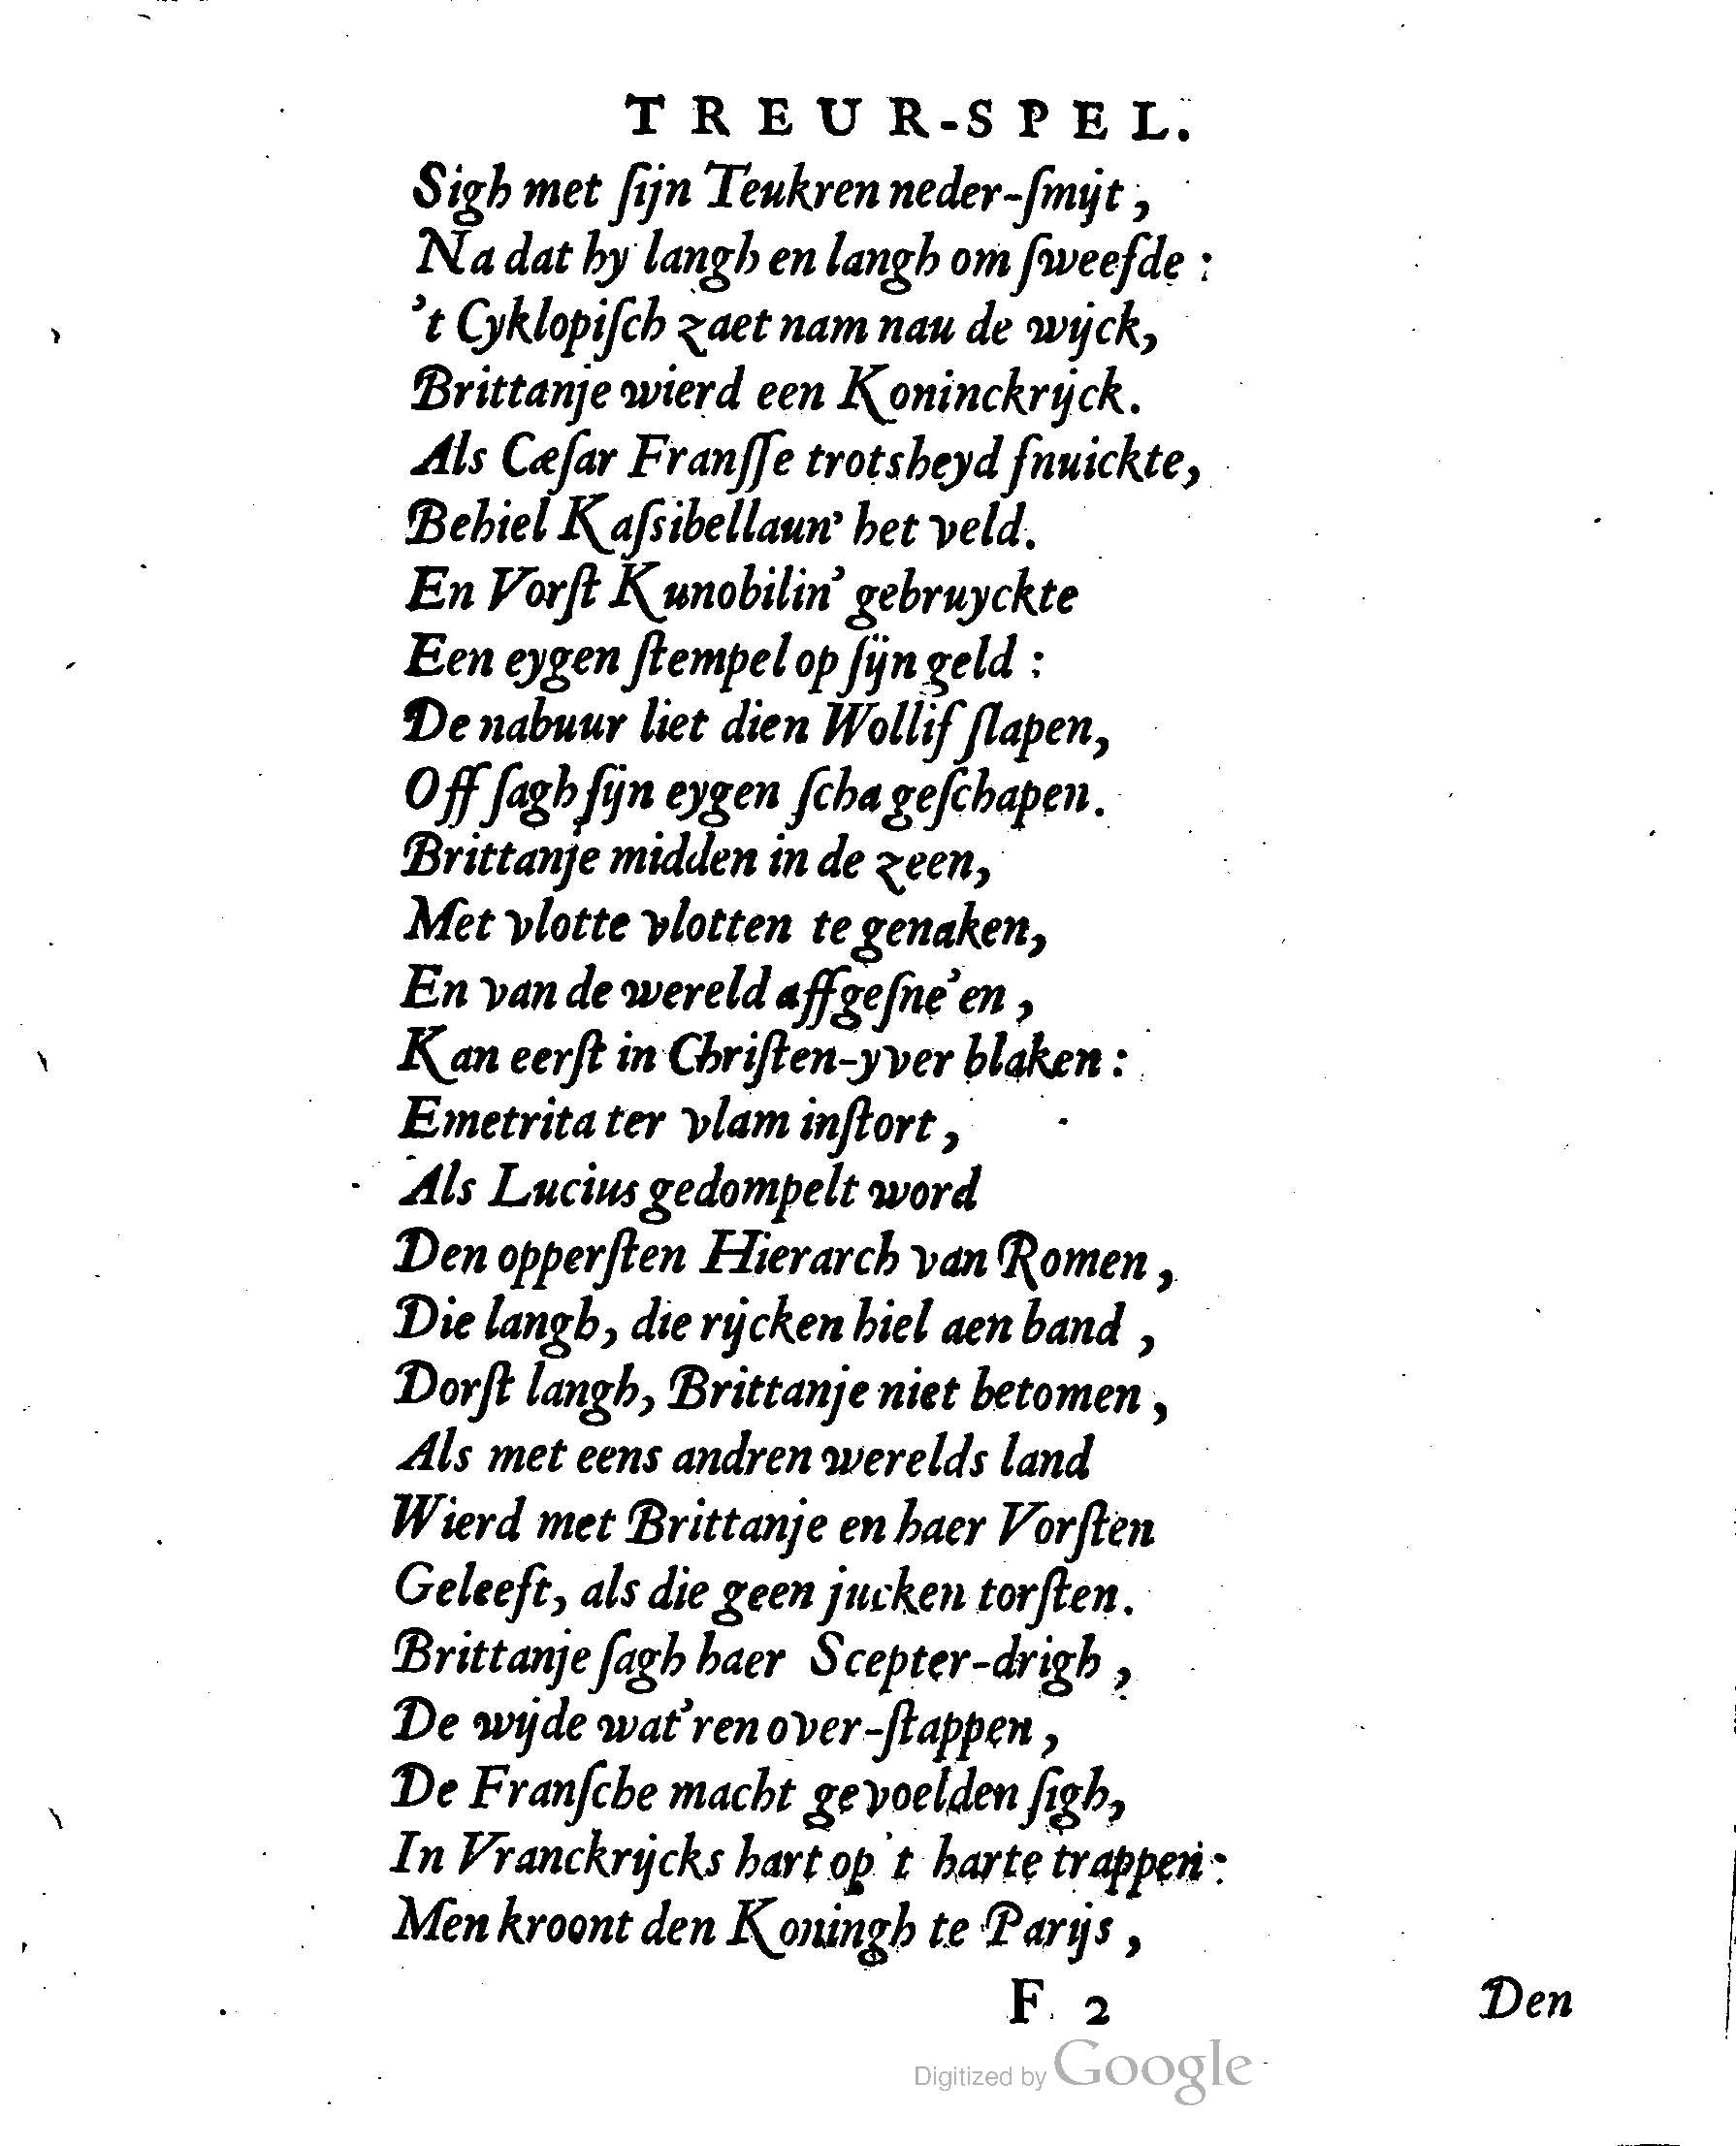 TREUR-SPEL.
Sigh met ſijn Teukren neder-ſmijt,
Na dat hy langh en langh om ſweefde:
't Cyklopiſch zaet nam nau de wijck,
Brittanje wierd een Koninckrijck.
Als Cæſar Franſſe trotsheyd ſnuickte,
Behiel Kaſsibellaun' het veld.
En Vorſt Kunobilin' gebruyckte
Een eygen ſtempel op ſijn geld:
De nabuur liet dien Wollif ſlapen,
Off ſagh ſijn eygen ſcha geſchapen.
Brittanje midden in de zeen,
Met vlotte vlotten te genaken,
En van de wereld affgeſne'en,
Kan eerſt in Chriſten-yver blaken:
Emetrita ter vlam inſtort,
Als Lucius gedompelt word
Den opperſten Hierarch van Romen,
Die langh, die rijcken hiel aen band,
Dorſt langh, Brittanje niet betomen,
Als met eens andren werelds land
Wierd met Brittanje en haer Vorſten
Geleeft, als die geen jucken torſten.
Brittanje ſagh haer Scepter-drigh,
De wijde wat'ren over-ſtappen,
De Franſche macht gevoelden ſigh,
In Vranckrijcks hart op 't harte trappen:
Men kroont den Koningh te Parijs,
F 2 Den
Digitized by Google